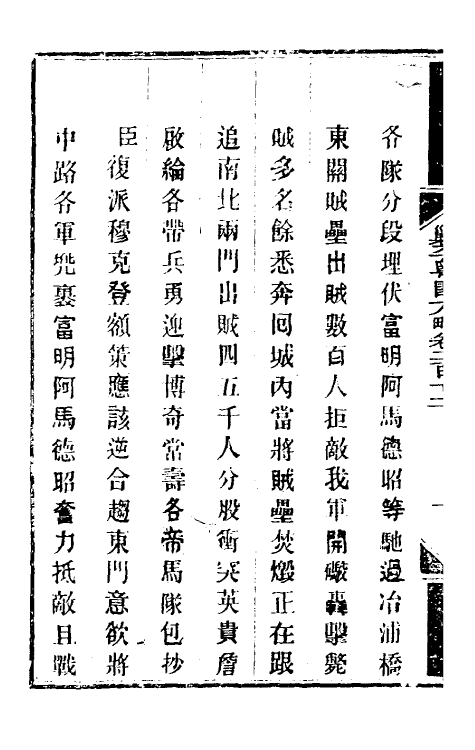 各隊分段埋伏富明阿馬德昭等馳過冶浦橋
東關賊壘出賊數百人拒敵我軍開礮轟擊斃
賊多名餘悉奔囘城內當將賊壘焚燬正在跟
追南北兩門出賊四五千人分股衝突英貴詹
啟綸各帶兵勇迎擊博奇常壽各帶馬隊包抄
臣復派穆克登額策應該逆合趨東門意欲將
中路各軍兜裹富明阿馬德昭奮力抵敵且戰